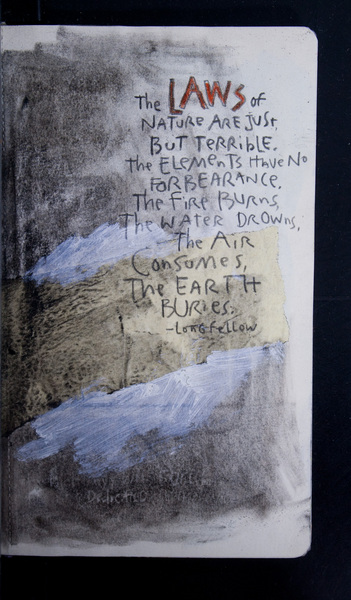 The LAWS of
NATURE ARE JUST,
BUT TERRIBLE.
The ELEMENTS HAVE NO
FORBEARANCE.
The FIRE BURNS,
The WATER DROWNS,
The AIR
CONSUMES,
The EARTH
BURIES.
-LONGFELLOW